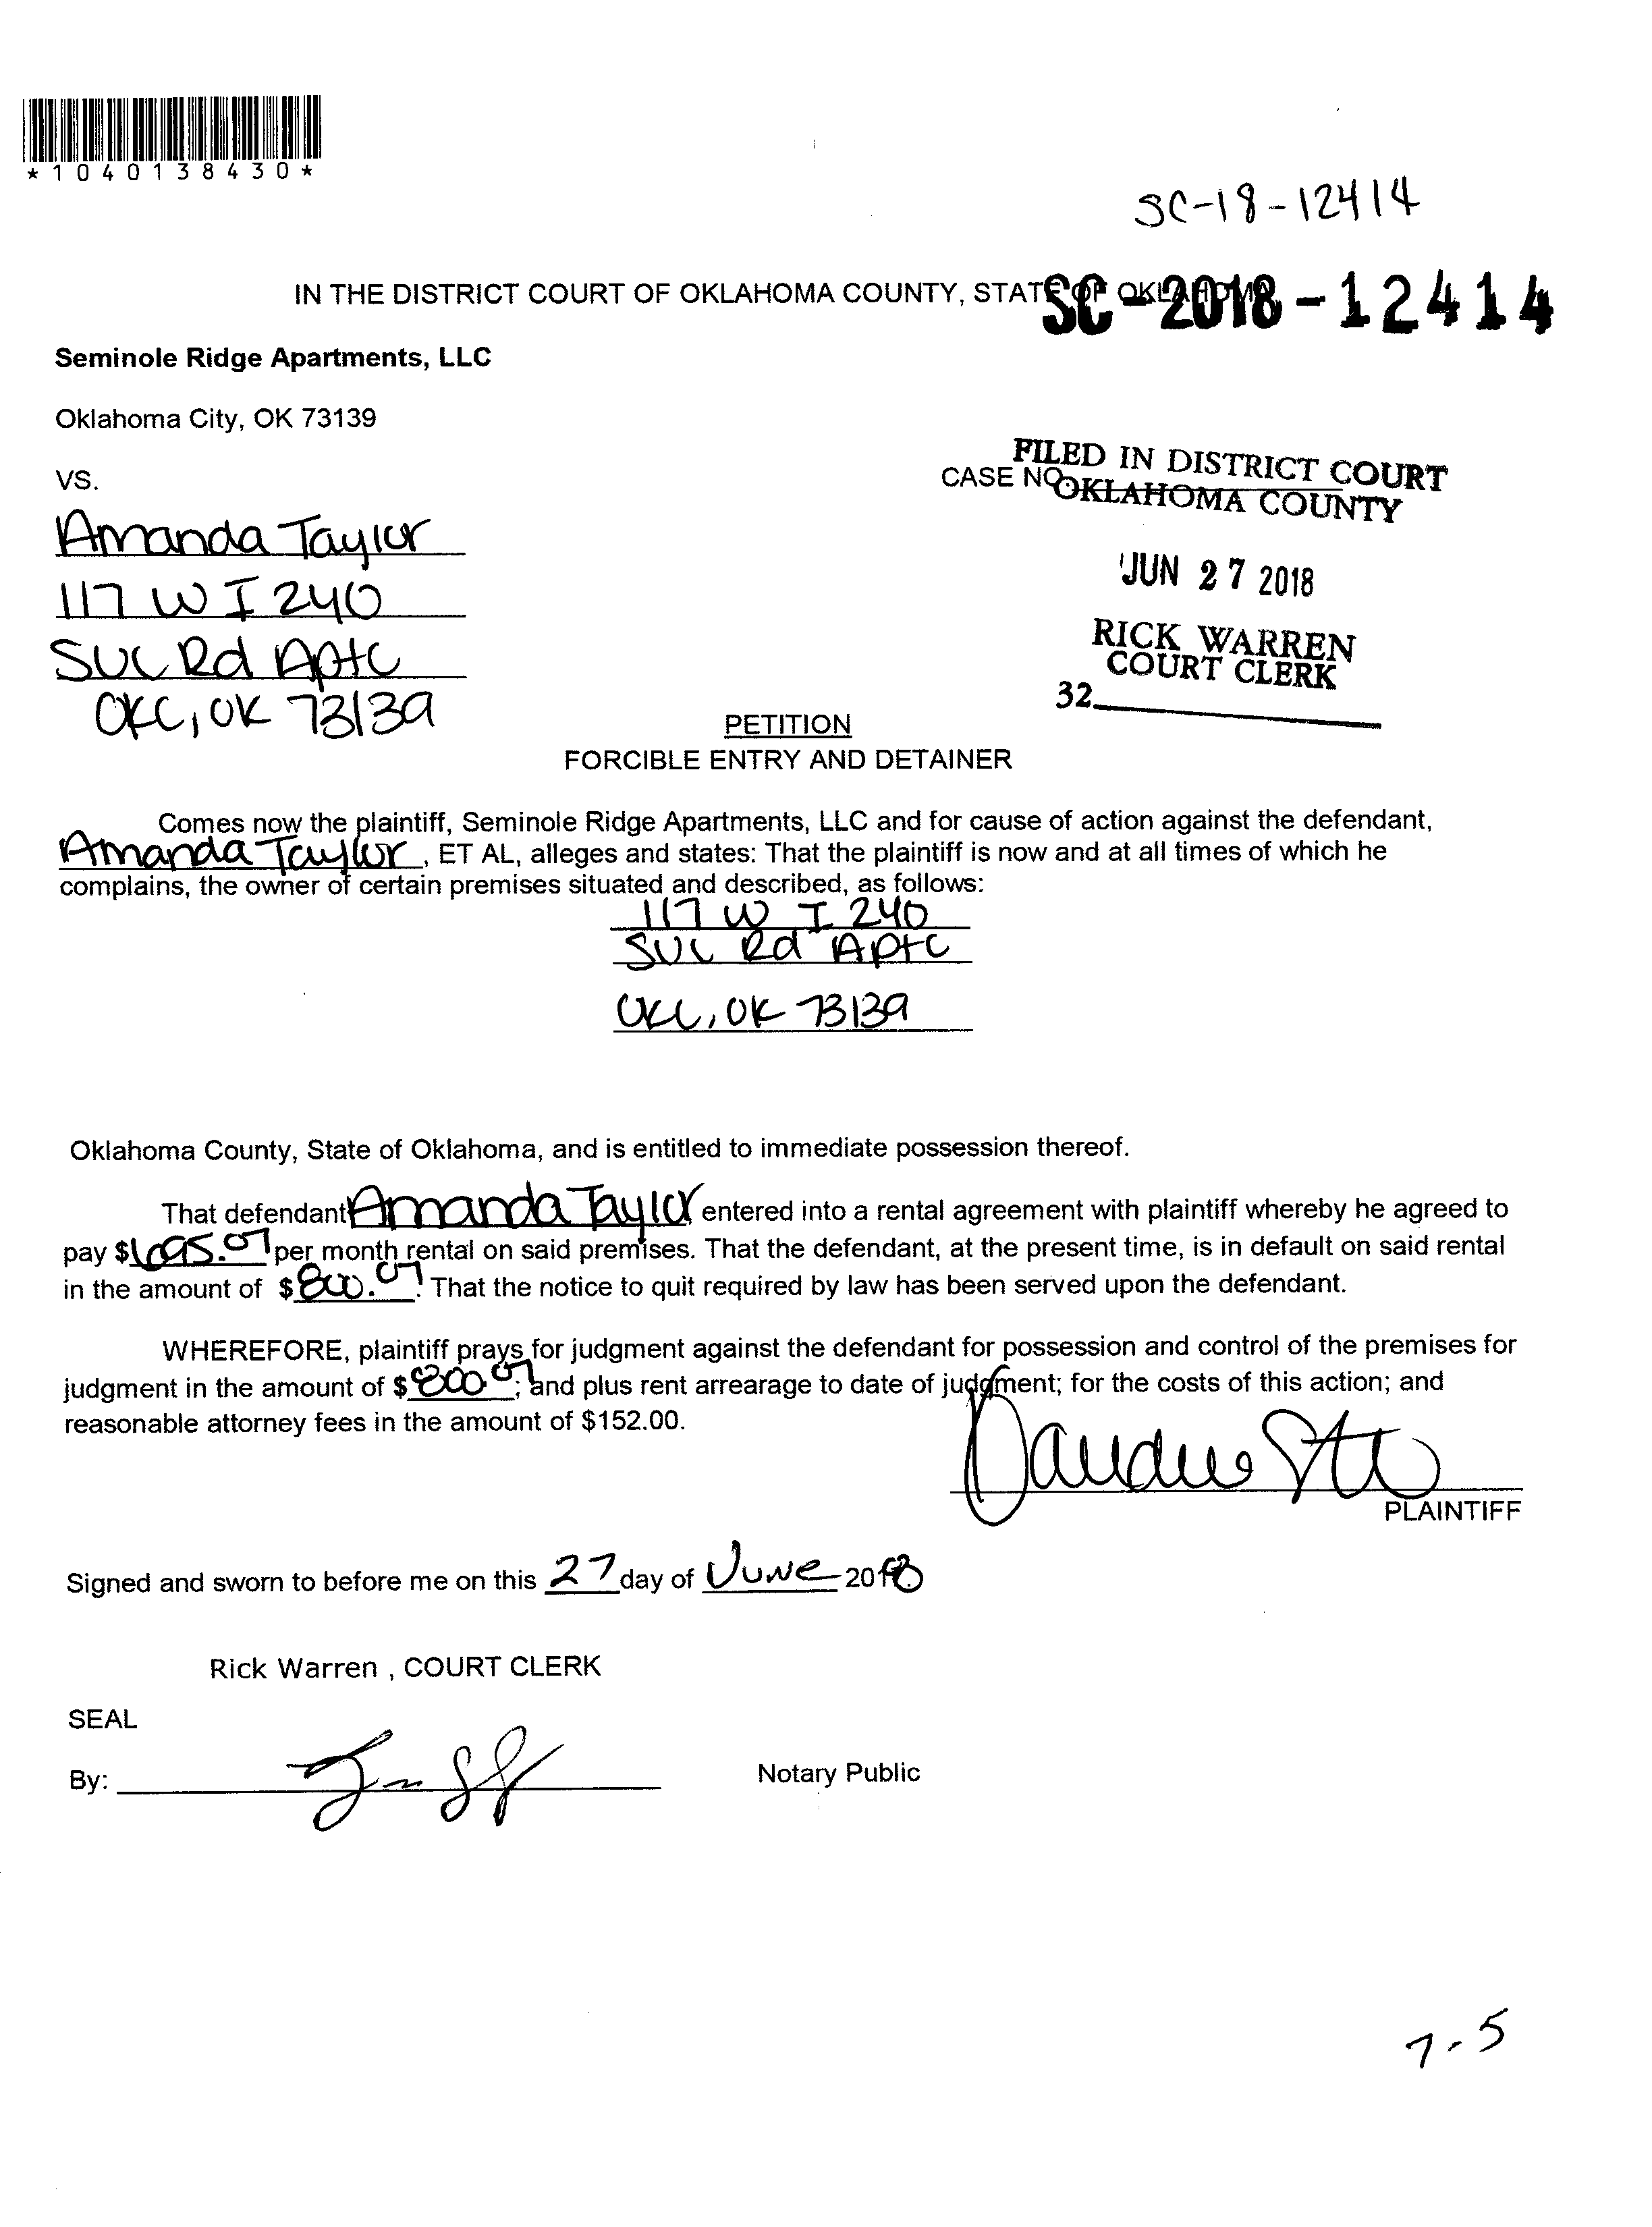 *1040138430*
SC-18-12414
IN THE DISTRICT COURT OF OKLAHOMA COUNTY, STATE OF OKLAHOMA
SC-2018-12414
Seminole Ridge Apartments, LLC
Oklahoma City, OK 73139
VS.
CASE NO.
FILED IN DISTRICT COURT
OKLAHOMA COUNTY
JUN 27 2018
RICK WARREN
COURT CLERK
32
Amanda Taylor
117 W I 240
SVC Rd Apt C
OKC, OK 73139
PETITION
FORCIBLE ENTRY AND DETAINER
Comes now the plaintiff, Seminole Ridge Apartments, LLC and for cause of action against the defendant,
Amanda Taylor, ET AL, alleges and states: That the plaintiff is now and at all times of which he
complains, the owner of certain premises situated and described, as follows:
117 W I 240
SVC Rd Apt C
OKC, OK 73139
Oklahoma County, State of Oklahoma, and is entitled to immediate possession thereof.
That defendant Amanda Taylor entered into a rental agreement with plaintiff whereby he agreed to
pay $695.07 per month rental on said premises. That the defendant, at the present time, is in default on said rental
in the amount of $800.07. That the notice to quit required by law has been served upon the defendant.
WHEREFORE, plaintiff prays for judgment against the defendant for possession and control of the premises for
judgment in the amount of $800.07; and plus rent arrearage to date of judgment; for the costs of this action; and
reasonable attorney fees in the amount of $152.00.
PLAINTIFF
Signed and sworn to before me on this 27 day of June 2018
Rick Warren , COURT CLERK
SEAL
By:
Notary Public
7-5